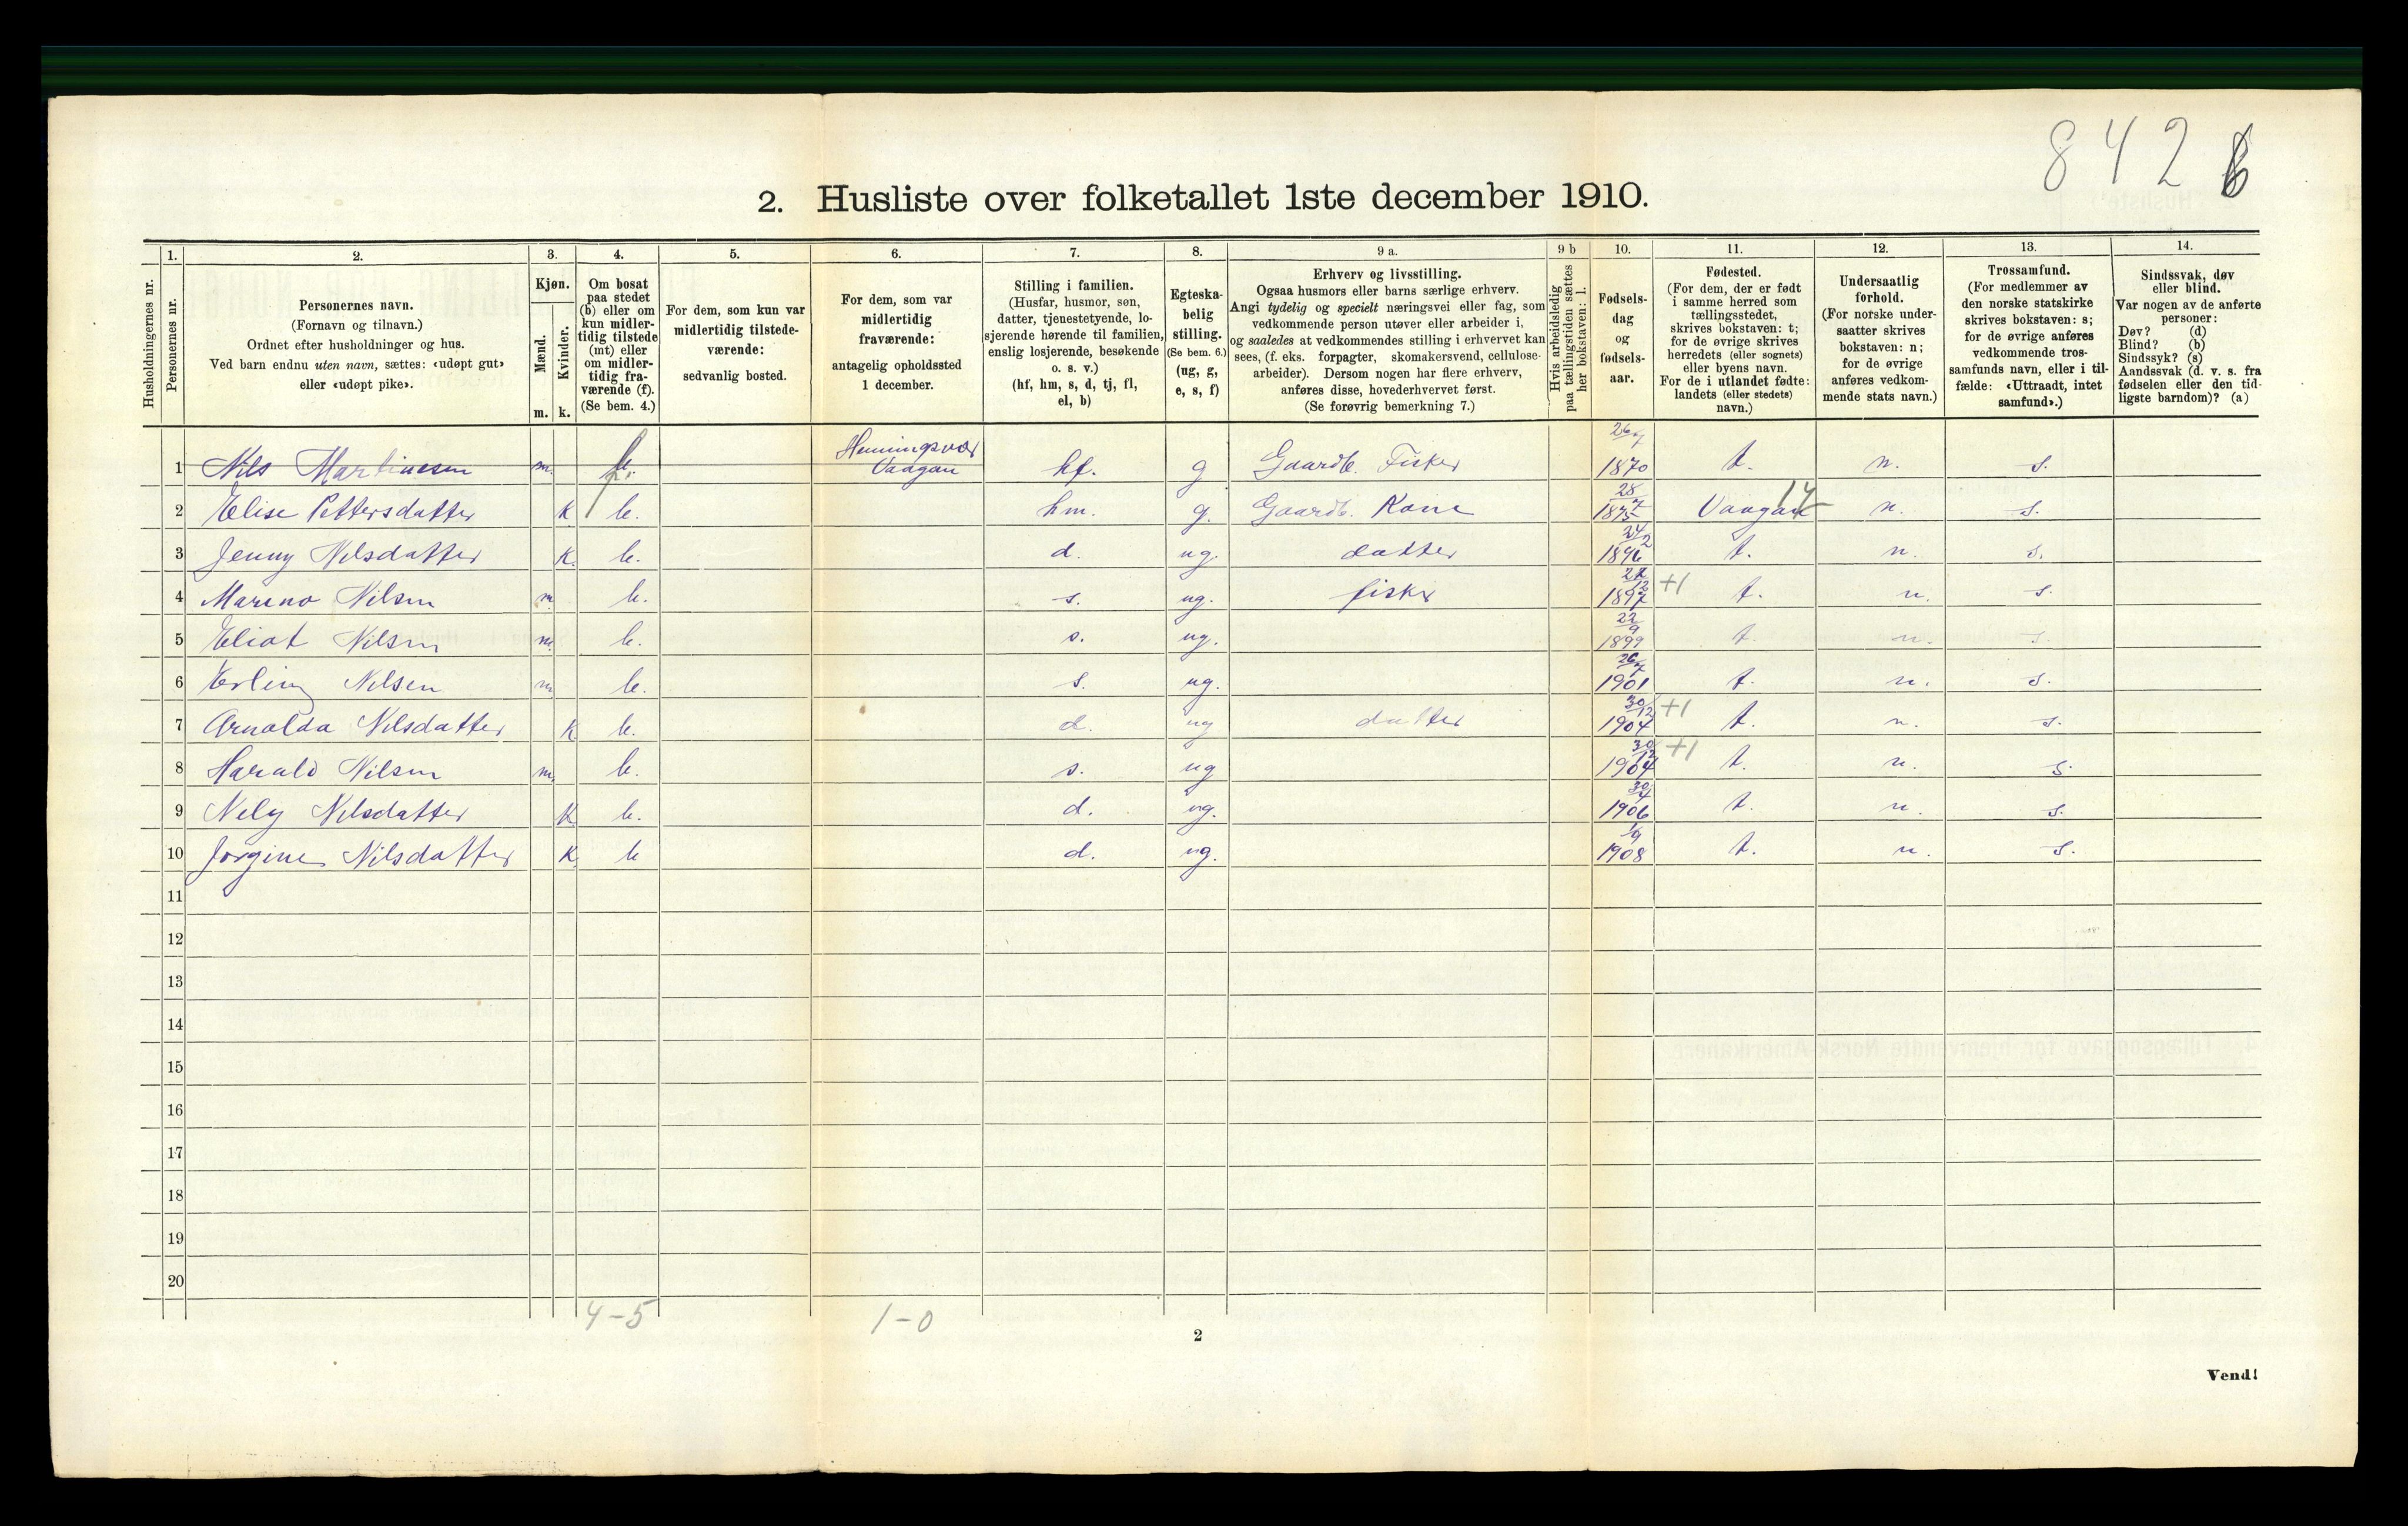 8 4 2 6
2. Husliste over folketallet 1ste december 1910.
1. 2. 3. 4. 5. 6. 7. 8. 9 a. 9 b 10. 11. 12. 13. 14.
Husholdningernes nr.
Personernes nr.
Personernes navn.
(Fornavn og tilnavn.)
Ordnet efter husholdninger og hus.
Ved barn endnu uten navn, sættes: «udøpt gut»
eller «udøpt pike».
Kjøn.
Mænd.
Kvinder.
m. k.
Om bosat
paa stedet
(b) eller om
kun midler-
tidig tilstede
(mt) eller
om midler-
tidig fra-
værende (f).
(Se bem. 4.)
For dem, som kun var
midlertidig tilstede-
værende:
sedvanlig bosted.
For dem, som var
midlertidig
fraværende:
antagelig opholdssted
1 december.
Stilling i familien.
(Husfar, husmor, søn,
datter, tjenestetyende, lo-
sjerende hørende til familien,
enslig losjerende, besøkende
o. s. v.)
(hf, hm, s, d, tj, fl,
el, b)
Egteska-
belig
stilling.
(Se bem. 6.)
(ug, g,
e, s, f)
Erhverv og livsstilling.
Ogsaa husmors eller barns særlige erhverv.
Angi tydelig og specielt næringsvei eller fag, som
vedkommende person utøver eller arbeider i,
og saaledes at vedkommendes stilling i erhvervet kan
sees, (f. eks. forpagter, skomakersvend, cellulose-
arbeider). Dersom nogen har flere erhverv,
anføres disse, hovederhvervet først.
(Se forøvrig bemerkning 7.)
Hvis arbeidsledig
paa tællingstiden sættes
her bokstaven: l.
Fødsels-
dag
og
fødsels-
aar.
Fødested.
(For dem, der er født
i samme herred som
tællingsstedet,
skrives bokstaven: t;
for de øvrige skrives
herredets (eller sognets)
eller byens navn.
For de i utlandet fødte:
landets (eller stedets)
navn.)
Undersaatlig
forhold.
(For norske under-
saatter skrives
bokstaven: n;
for de øvrige
anføres vedkom-
mende stats navn.)
Trossamfund.
(For medlemmer av
den norske statskirke
skrives bokstaven: s;
for de øvrige anføres
vedkommende tros-
samfunds navn, eller i til-
fælde: «Uttraadt, intet
samfund».)
Sindssvak, døv
eller blind.
Var nogen av de anførte
personer:
Døv? (d)
Blind? (b)
Sindssyk? (s)
Aandssvak (d. v. s. fra
fødselen eller den tid-
ligste barndom)? (a)
1 Nils Martinesen m. f. Henningsvær Vaagan hf. g Gaardb. Fisker 26/7 1870 t. n. s.
2 Elise Pettersdatter K b. hm. g. Gaardb. Kone 28/7 1875 Vaagan 17 n. s.
3 Jenny Nilsdatter K. b. d. ug. datter 24/2 1896 t. n. s.
4 Mareno Nilsen m b. s. ug. fisker 12 1897 +1 t. n. s.
5 Eliot Nilsen m. b. s. ug. 22/9 1899 t. n. s.
6 Erling Nilsen m b. s. ug. 26/7 1901 t. n. s.
7 Arnolda Nilsdatter K b. d. ug datter 30/12 1904 +1 t. n. s.
8 Harald Nilsen m. b. s. ug 30/12 1904 +1 t. n. s.
9 Nely Nilsdatter K b. d. ug. 30/4 1906 t. n. s.
10 Jorgine Nilsdatter K. b d. ug. 1/9 1908 t. n. s.
11
12
13
14
15
16
17
18
19
20
4-5 1-0
2
Vend!